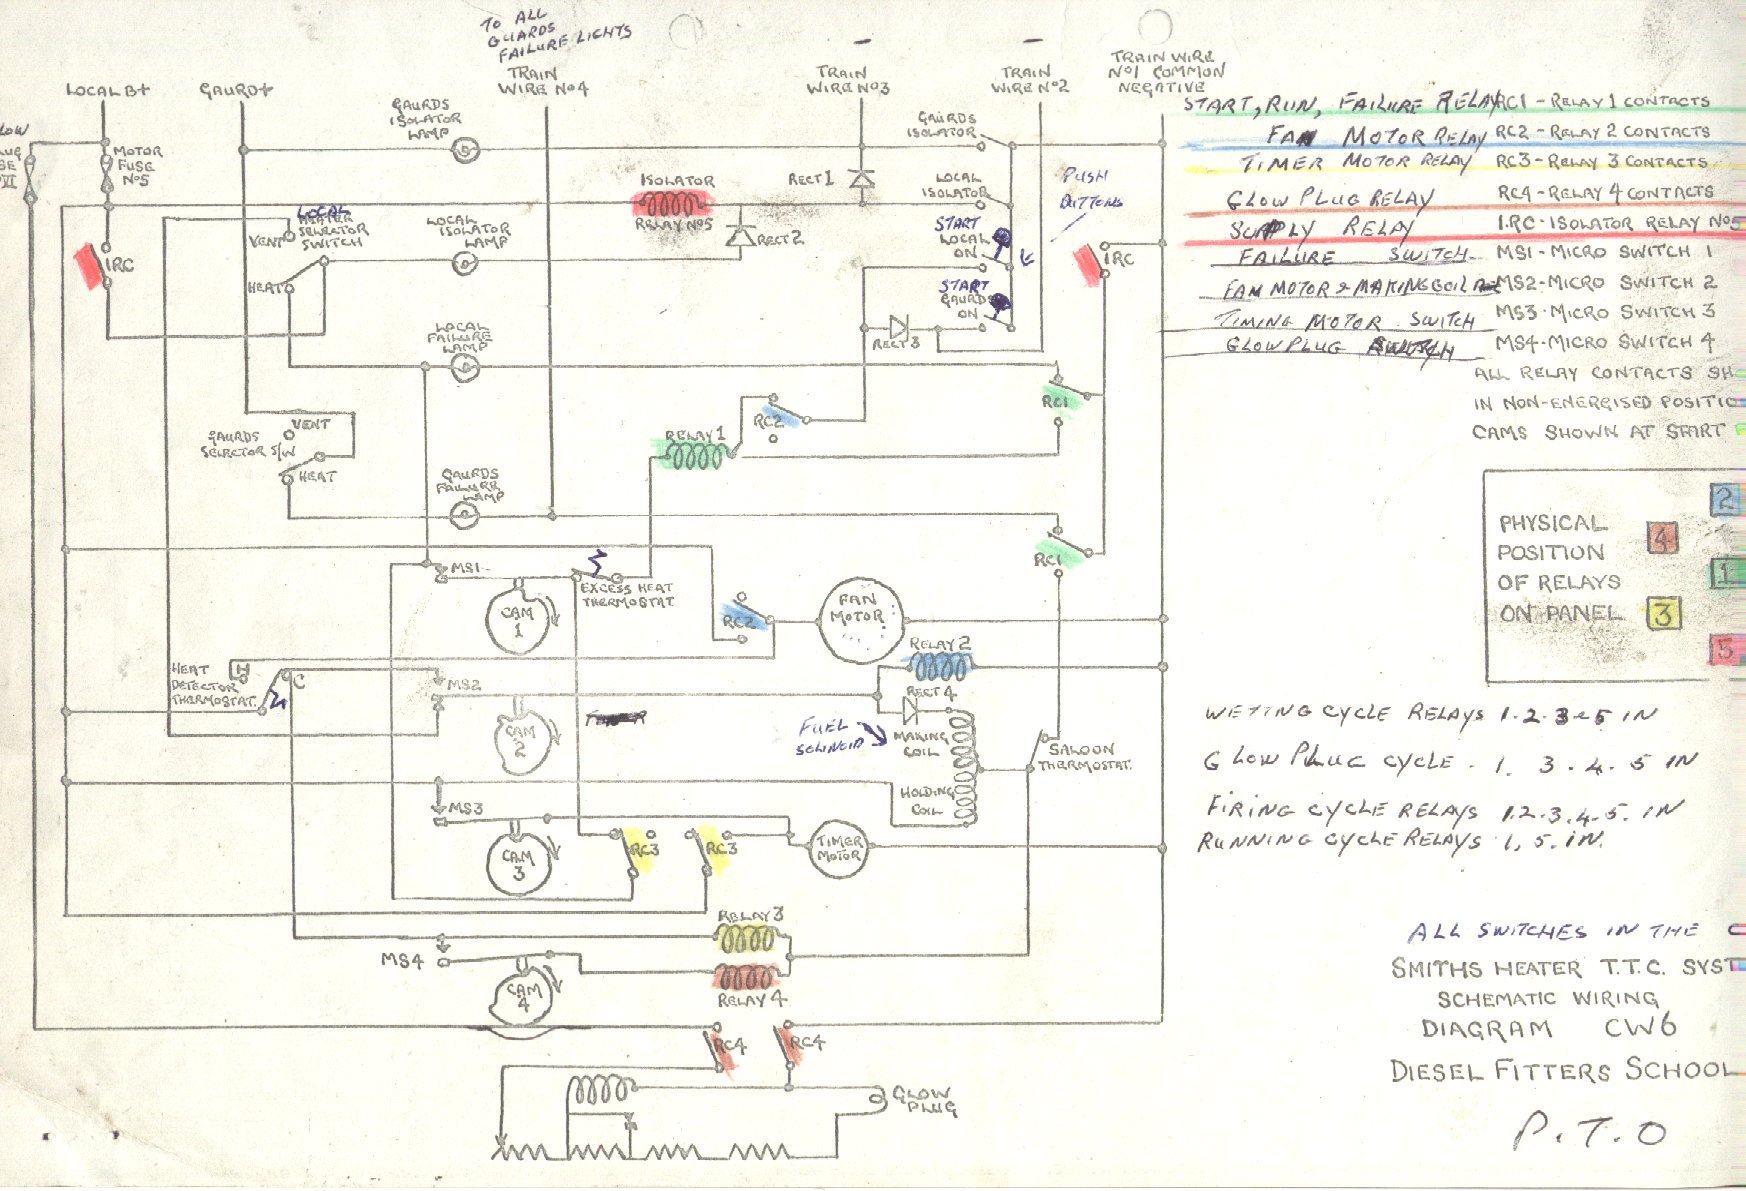 TO ALL
GUARDS
FAILURE LIGHTS
LOCAL B+
GAURD+
TRAIN
WIRE Nº4
TRAIN
WIRE Nº3
TRAIN
WIRE Nº2
TRAIN WIRE
Nº1 COMMON
NEGATIVE
MOTOR
FUSE
Nº5
GAURDS
ISOLATOR
LAMP
GAURDS
ISOLATOR
RECT 1
ISOLATOR
RELAY Nº5
LOCAL
ISOLATOR
PUSH
BUTTONS
LOCAL
HEATER
SELECTOR
SWITCH
VENT
HEAT
LOCAL
ISOLATOR
LAMP
RECT 2
START
LOCAL
ON
START
GAURDS
ON
1RC
1RC
RECT 3
LOCAL
FAILURE
LAMP
RC1
RC2
RELAY 1
VENT
GAURDS
SELECTOR S/W
HEAT
GAURDS
FAILURE
LAMP
RC1
MS1
CAM
1
EXCESS HEAT
THERMOSTAT
RC2
FAN
MOTOR
RELAY 2
HEAT
DETECTOR
THERMOSTAT
H
C
MS2
CAM
2
RECT 4
MAKING
COIL
FUEL
SOLINOID
SALOON
THERMOSTAT.
HOLDING
COIL
MS3
CAM
3
RC3
RC3
TIMER
MOTOR
RELAY 3
MS4
CAM
4
RELAY 4
RC4
RC4
GLOW
PLUG
START, RUN, FAILURE RELAY RC1 - RELAY 1 CONTACTS
FAN MOTOR RELAY RC2 - RELAY 2 CONTACTS
TIMER MOTOR RELAY RC3 - RELAY 3 CONTACTS
GLOW PLUG RELAY RC4 - RELAY 4 CONTACTS
SUPPLY RELAY 1.RC - ISOLATOR RELAY Nº5
FAILURE SWITCH MS1 - MICRO SWITCH 1
FAN MOTOR & MAKING COIL MS2 - MICRO SWITCH 2
TIMING MOTOR SWITCH MS3 - MICRO SWITCH 3
GLOW PLUG SWITCH MS4 - MICRO SWITCH 4
ALL RELAY CONTACTS SH
IN NON-ENERGISED POSITIO
CAMS SHOWN AT START
PHYSICAL
POSITION
OF RELAYS
ON PANEL
2
4
1
3
5
WETTING CYCLE RELAYS 1.2.3-5 IN
GLOW PLUG CYCLE. 1. 3. 4. 5 IN
FIRING CYCLE RELAYS 1.2.3.4.5. IN
RUNNING CYCLE RELAYS 1, 5. IN.
ALL SWITCHES IN THE
SMITHS HEATER T.T.C. SYST
SCHEMATIC WIRING
DIAGRAM CW6
DIESEL FITTERS SCHOOL
P.T.O